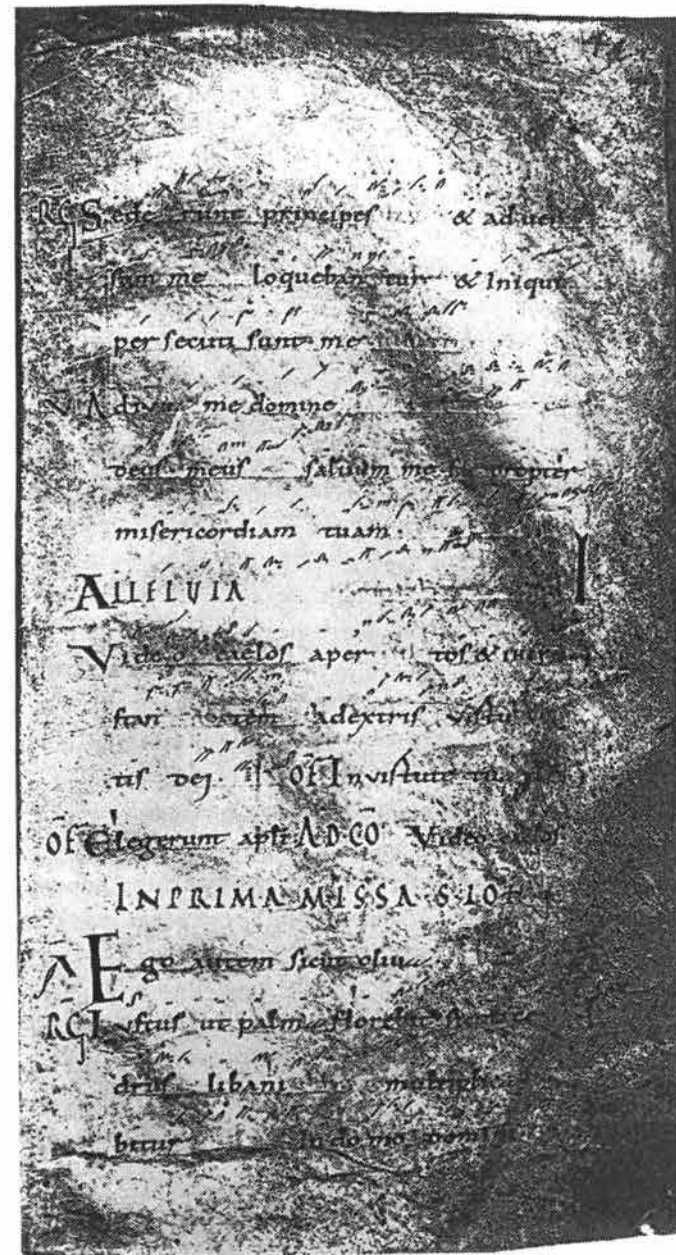 RG Sede runt principes & aduer
sum me loqueban tur & Iniqui
per secuti sunt me
V Adiuua me domine
deus meus saluum me fac propter
misericordiam tuam
ALLELUIA
Video caelos aper tos & ihesum
stan tem adextris uirtu
tis dei of Inuirtute tu
of Elegerunt apli AD CO Video caelos
IN PRIMA MISSA S IOH
A Ego autem sicut oliu
RG Iustus ut palm florebit sicut ce
drus libani multiplica
bitur In domo domini